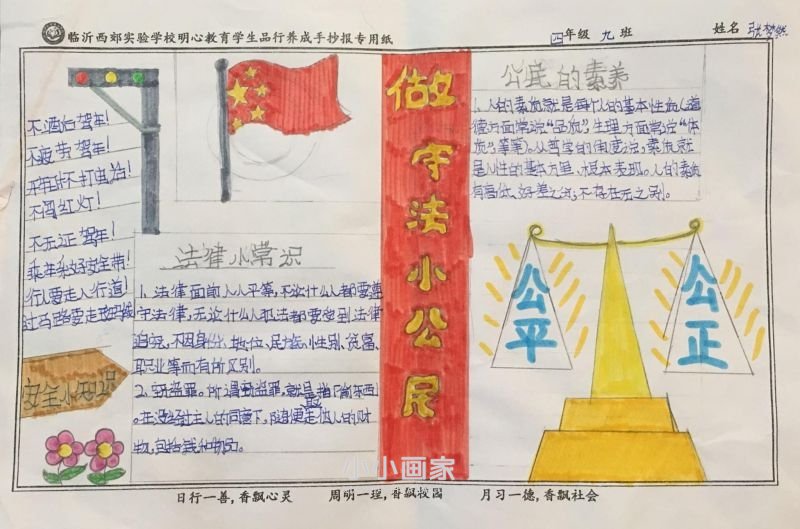 临沂西郊实验学校明心教育学生品行养成手抄报专用纸
四年级 九 班
姓名 张梦然
不酒后驾车!
不疲劳驾车!
开车时不打电话!
不闯红灯!
不无证驾车!
乘车系好安全带!
行人要走人行道!
过马路要走斑马线
安全小知识
法律小常识
1、法律面前人人平等,不论什么人都要遵
守法律,无论什么人犯法都要受到法律
追究,不因身份、地位、民族、性别、贫富、
职业等而有所区别。
2、盗窃罪。所谓盗窃罪,就是指偷东西
。在没经过主人的同意下,随便走他人的财
物,包括钱和物品。
做守法小公民
公民的素养
1、人的素质就是每个人的基本性质(道
德方面常说“品质”,生理方面常说“体
质”,等等)。从哲学的角度说,素质就
是人性的基本方里、根本表现。人的素质
有高低、好差之说,不存在无之别。
公平
公正
小小画家
日行一善,香飘心灵 周明一理,香飘校园 月习一德,香飘社会